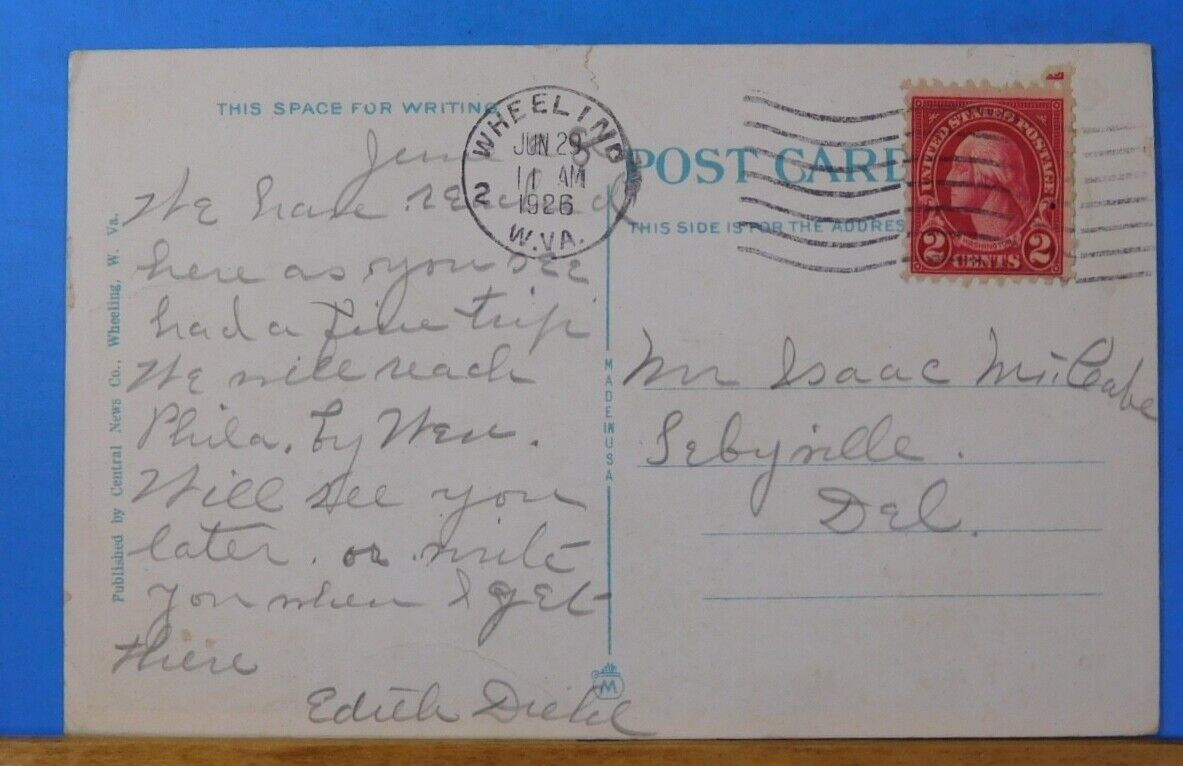 THIS SPACE FOR WRITING
June
We have reached
here as you see
had a fine trip
We will reach
Phila. by Wen.
Will see you
later. or write
you when I get
there
Edith Diehl
Published by Central News Co., Wheeling, W. Va.
WHEELING
JUN 29
11 AM
1926
W.VA.
2
POST CARD
THIS SIDE IS FOR THE ADDRES
UNITED STATES POSTAGE
WASHINGTON
2 CENTS 2
MADE IN USA
Mr Isaac McCabe
Sebyville.
Del.
M